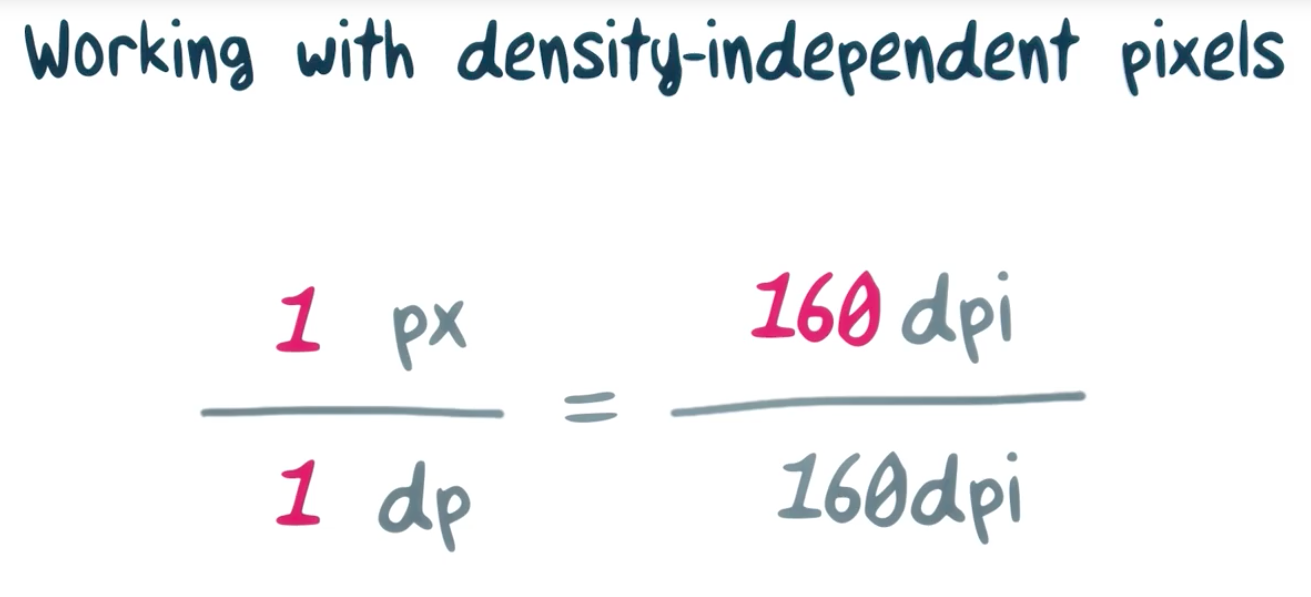 Working with density-independent pixels
1 px
1 dp
=
160 dpi
160dpi